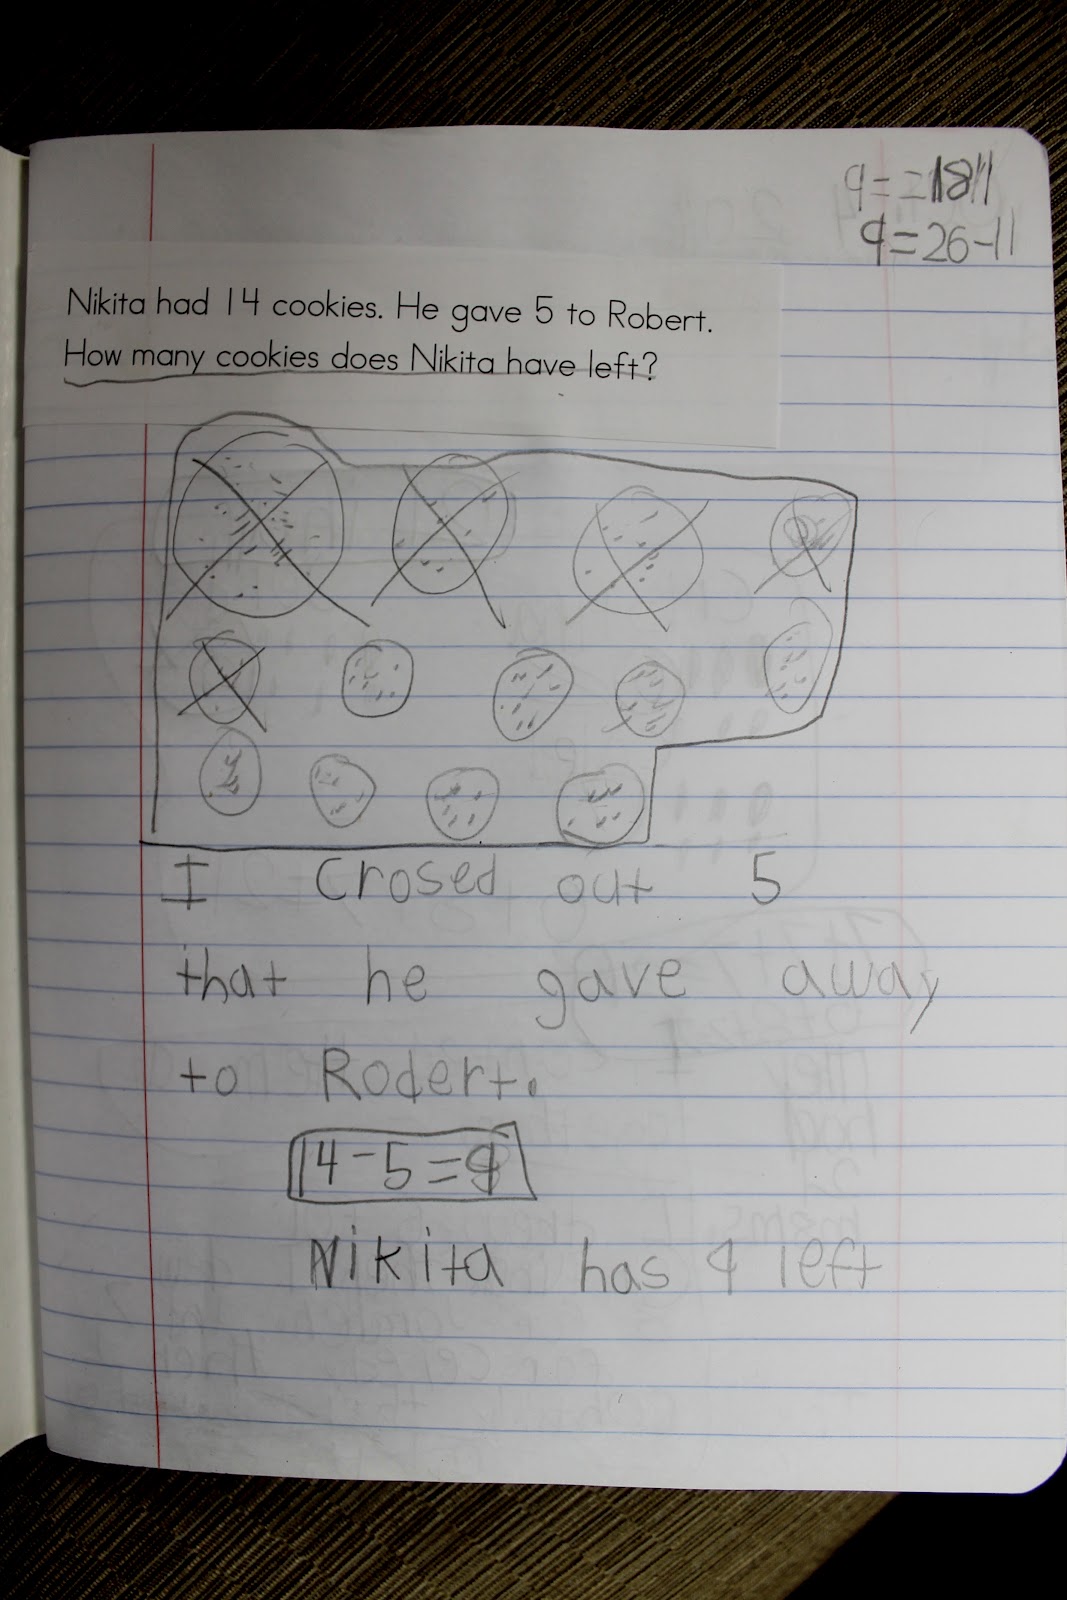 9=26-11
Nikita had 14 cookies. He gave 5 to Robert.
How many cookies does Nikita have left?
I Crosed out 5
that he gave away
to Rodert.
14-5=9
Nikita has 9 left